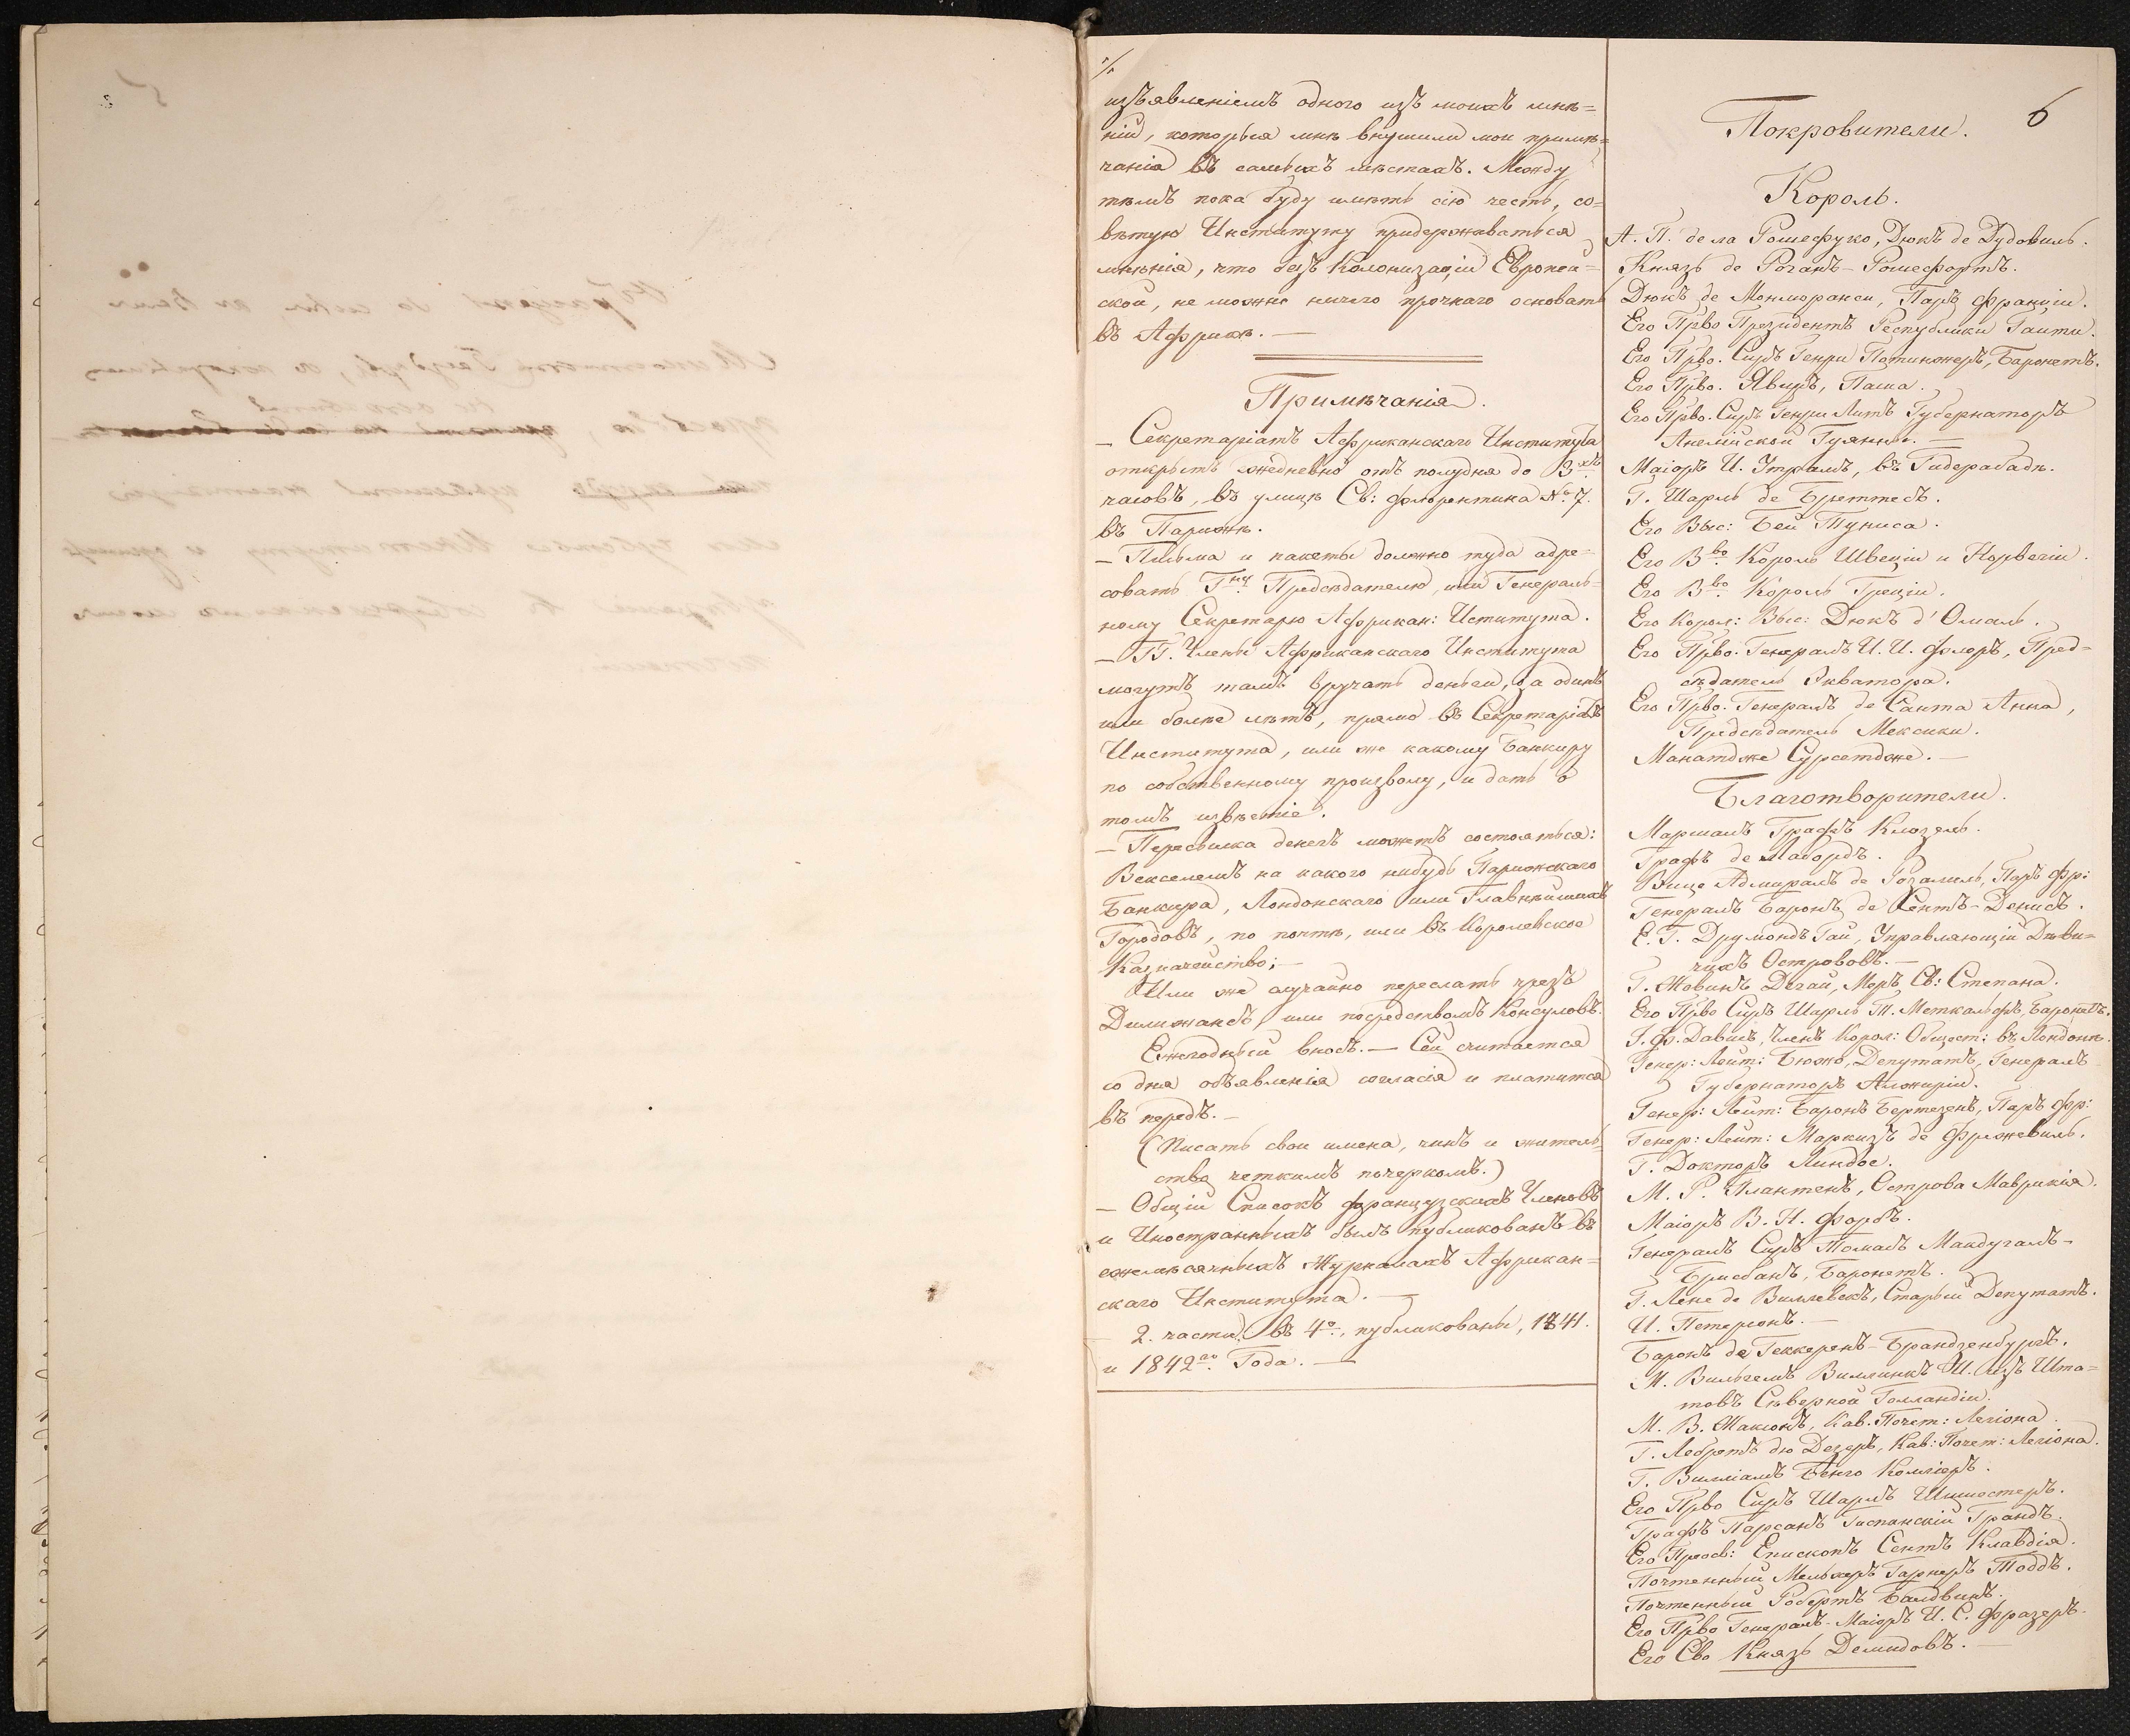 изъявленіемъ одного изъ моихъ мнѣ=
ній, которыя мнѣ внушили мои примѣ=
чанія въ самыхъ мѣстахъ. Между
тѣмъ пока буду имѣть сію честь, со=
вѣтую Институту придерживаться
мнѣнія, что безъ Колонизаціи Европей=
ской, не можно ничего прочнаго основать
въ Африкѣ. —
Примѣчанія.
— Секретаріатъ Африканскаго Института
открытъ ежедневно отъ полудня до 3хъ
часовъ, въ улицѣ Св: Флорентина №. 7.
въ Парижѣ.
— Письма и пакеты должно туда адре=
совать Гну. Предсѣдателю, или Генераль=
ному Секретарю Африкан: Иститута.
— ГГ. Члены Африканскаго Института
могутъ тамъ вручать деньги, за одинъ
или болѣе лѣтъ, прямо въ Секретаріатъ
Института, или же какому Банкиру
по собственному произволу, и дать о
томъ извѣстіе.
— Пересылка денегъ можетъ состояться:
Векселемъ на какого нибудь Парижскаго
Банкира, Лондонскаго или Главнѣйшихъ
Городовъ, по почтѣ, или въ Королевское
Казначейство; —
Или же случайно переслать чрезъ
Дилижансъ, или посредствомъ Консуловъ.
Ежегодный вносъ. — Сей считается
со дня объявленія согласія и платится
въ передъ. —
(Писать свои имена, чинъ и житель=
ство четкимъ почеркомъ.)
— Общій Списокъ французскихъ Членовъ
и Иностранныхъ былъ публикованъ въ
ежемѣсячныхъ Журналахъ Африкан=
скаго Института. —
2. части, въ 4о., публикованы, 1841.
и 1842го. Года. —
6
Покровители.
Король.
А. П. де ла Рошефуко, Дюкъ де Дудовиль.
Князь де Роганъ-Рошефортъ.
Дюкъ де Монморанси, Паръ Франціи.
Его Прво Президентъ Республики Гаити.
Его Прво. Сиръ Генри Потинжеръ, Баронетъ.
Его Прво. Явиръ, Паша.
Его Прво. Сиръ Генри Литъ Губернаторъ
Англійской Гуянны. —
Маіоръ И. Утрамъ, въ Гидерабадѣ.
Г. Шарль де Бреттесъ.
Его Выс: Бей Туниса.
Его Вво. Король Швеціи и Норвегіи.
Его Вво. Король Греціи.
Его Корол: Выс: Дюкъ д'Омаль.
Его Прво. Генералъ И. И. Флоръ, Пред=
сѣдатель Экватора.
Его Прво. Генералъ де Санта Анна,
Предсѣдатель Мексики.
Манатдже Сурсетдже. —
Благотворители.
Маршалъ Графъ Клозель.
Графъ де Лабордъ.
Вице Адмиралъ де Розамель, Паръ Фр:
Генералъ Баронъ де Сентъ-Денисъ.
Е. Г. Друмондъ Гай, Управляющій Дѣви=
чихъ Острововъ. —
Г. Жовинъ Дегай, Меръ Св: Степана.
Его Прво Сиръ Шарль Т. Меткальфъ, Баронетъ.
Г. Ф. Дависъ, Членъ Корол: Общест: въ Лондонѣ.
Генер: Лейт: Бюжо, Депутатъ, Генералъ
Губернаторъ Алжиріи.
Генер: Лейт: Баронъ Бертезенъ, Паръ Фр:
Генер: Лейт: Маркизъ де Фрежевиль.
Г. Докторъ Линдсе.
М. Р. Плантенъ, Острова Маврикія.
Маіоръ В. Н. Форбъ.
Генералъ Сиръ Томасъ Макдугалъ-
Брисбанъ, Баронетъ.
Г. Лене де Виллевекъ, Старый Депутатъ.
И. Петерсонъ. —
Баронъ де Геккеренъ-Брандзенбургъ.
М. Вильгемъ Виллинкъ И. изъ Шта=
товъ Сѣверной Голландіи.
М. В. Жаксонъ, Кав. Почет: Легіона.
Г. Лебретъ дю Дезеръ, Кав: Почет: Легіона.
Г. Вилліамъ Венго Комгіеръ.
Его Прво Сиръ Шарлъ Шишестеръ.
Графъ Парсанъ Гиспанскій Грандъ.
Его Преосв: Епископъ Сентъ Клавдія.
Почтенный Мельхеръ Гарнеръ Тоддъ.
Почтенный Робертъ Балдвинъ.
Его Прво Генералъ-Маіоръ И. С. Фразеръ.
Его Сво Князь Демидовъ. —